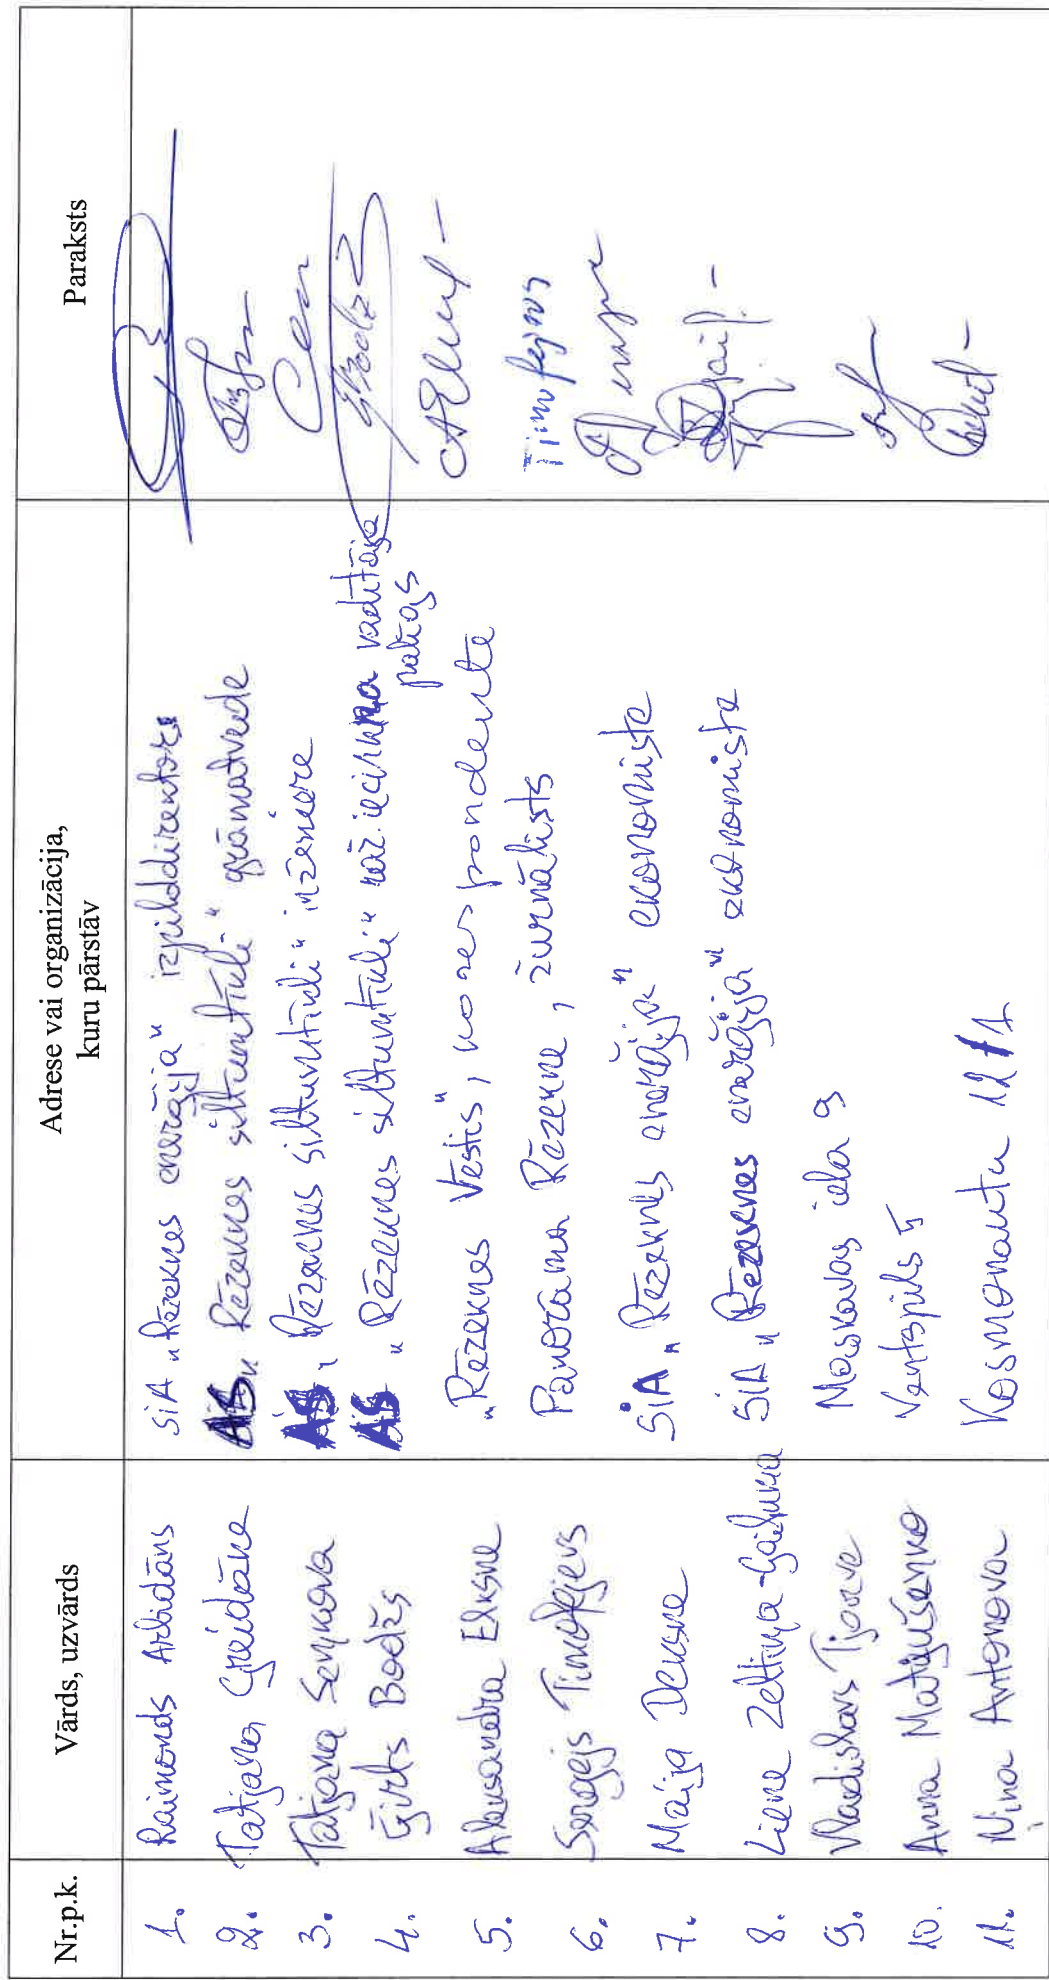 Nr.p.k. Vārds, uzvārds Adrese vai organizācija, kuru pārstāv Paraksts
1. Raimonds Arbidāns SIA „Rēzeknes enerģija" izpilddirektors
2. Tatjana Greidāne AS „Rēzeknes siltumtīkli" grāmatvede
3. Tatjana Semjonova AS „Rēzeknes siltumtīkli" inženiere
4. Ģirts Bodžs AS „Rēzeknes siltumtīkli" raž. iecirkņa vadītāja
palīgs
5. Aleksandra Elksne „Rēzeknes Vestis", korespondente
6. Sergejs Timofejevs Panorama Rēzekne, žurnālists Timofejevs
7. Maija Deksne SIA „Rēzeknes enerģija" ekonomiste
8. Liene Zeltiņa-Gailuma SIA „Rēzeknes enerģija" ekonomiste
9. Vladislavs Maskavas iela 9
10. Anna Matjušenko Ventspils 5
11. Nina Antonova Kosmonautu 12